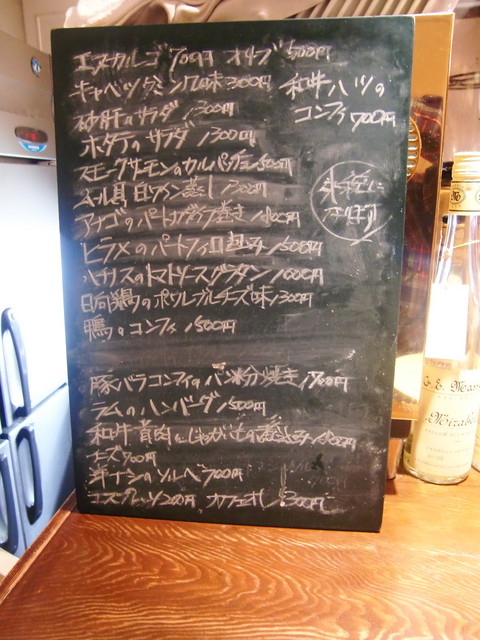 エスカルゴ 700円 オリーブ 500円
キャベツ クミン風味 300円
和牛ハツの
コンフィ 700円
砂肝のサラダ 1300円
ホタテのサラダ 1300円
スモークサーモンのカルパッチョ 1500円
ムール貝 白ワイン蒸し 1300円
アナゴの 巻き
ヒラメのパートフィロ包み 1500円
ハチノスのトマトソースグラタン 1000円
日向鶏のポワレ ブルーチーズ味 1300円
鴨のコンフィ 1500円
豚バラコンフィのパン粉焼き 1700円
ラムのハンバーグ 1500円
和牛 肉とじゃがいもの
チーズ 700円
洋ナシのソルベ 700円
200円 カフェオレ 300円